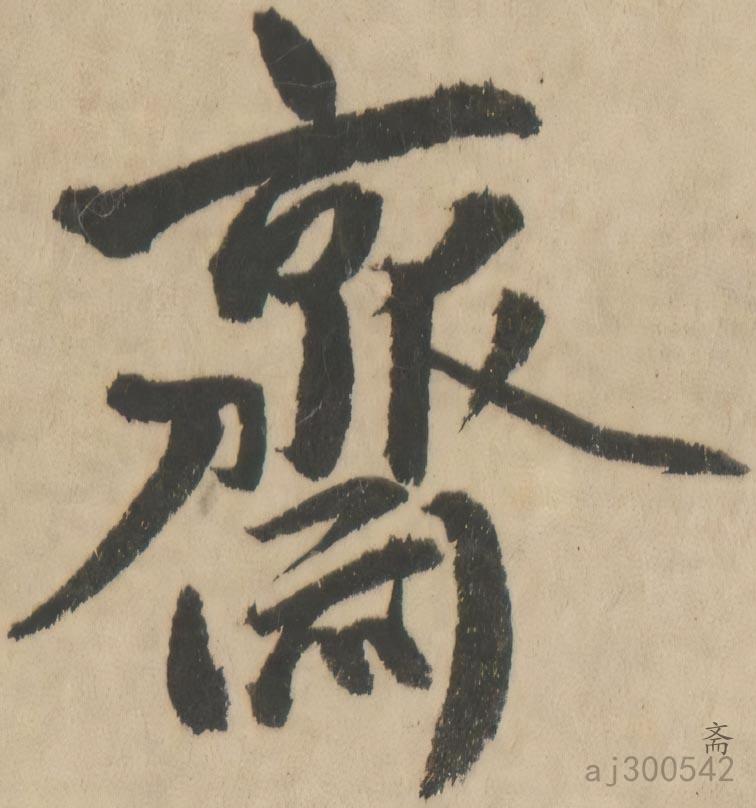 齋
斋
aj300542